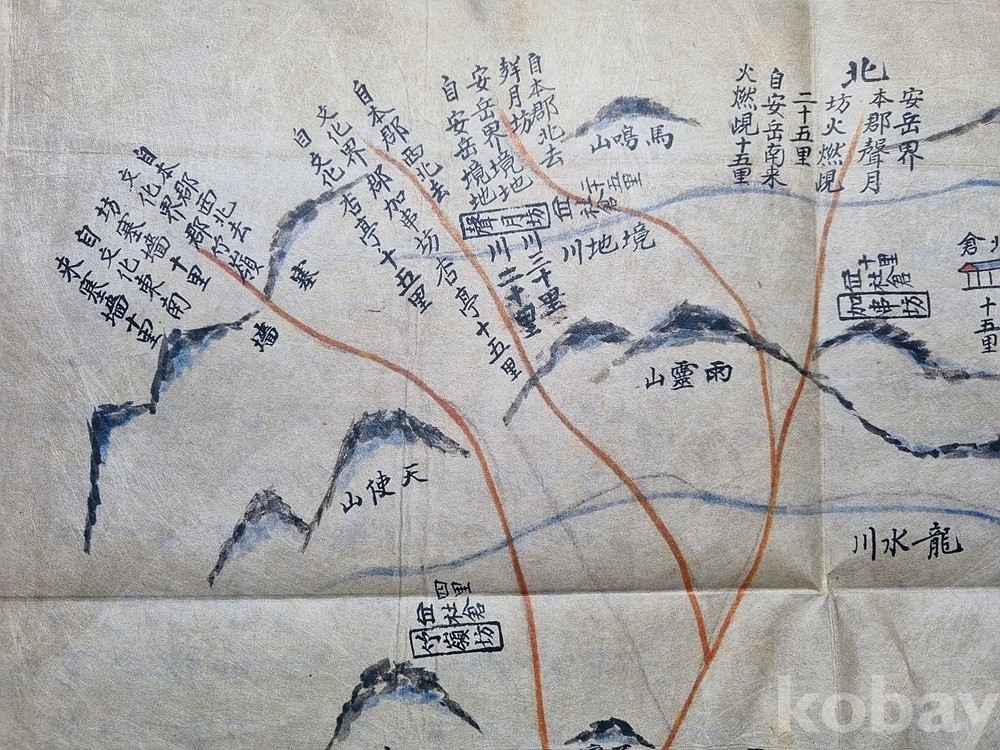 北
安岳界
本郡聲月
坊火燃峴
二十五里
自安岳南来
火燃峴十五里
馬鳴山
自本郡北去
安岳界境地
川三十里
自安岳境地
川二十里
聲月坊
社倉
二十五里
境地川
自本郡西北去
加串坊杏亭十五里
文化界
自文化
杏亭十五里
自本郡西北去
文化界
郡竹嶺
坊塞墻
十里
自文化東南
来塞墻十里
塞墻
雨靈山
十里
社倉
坊
倉
十五里
天使山
龍水川
四里
社倉
竹嶺坊
kobay